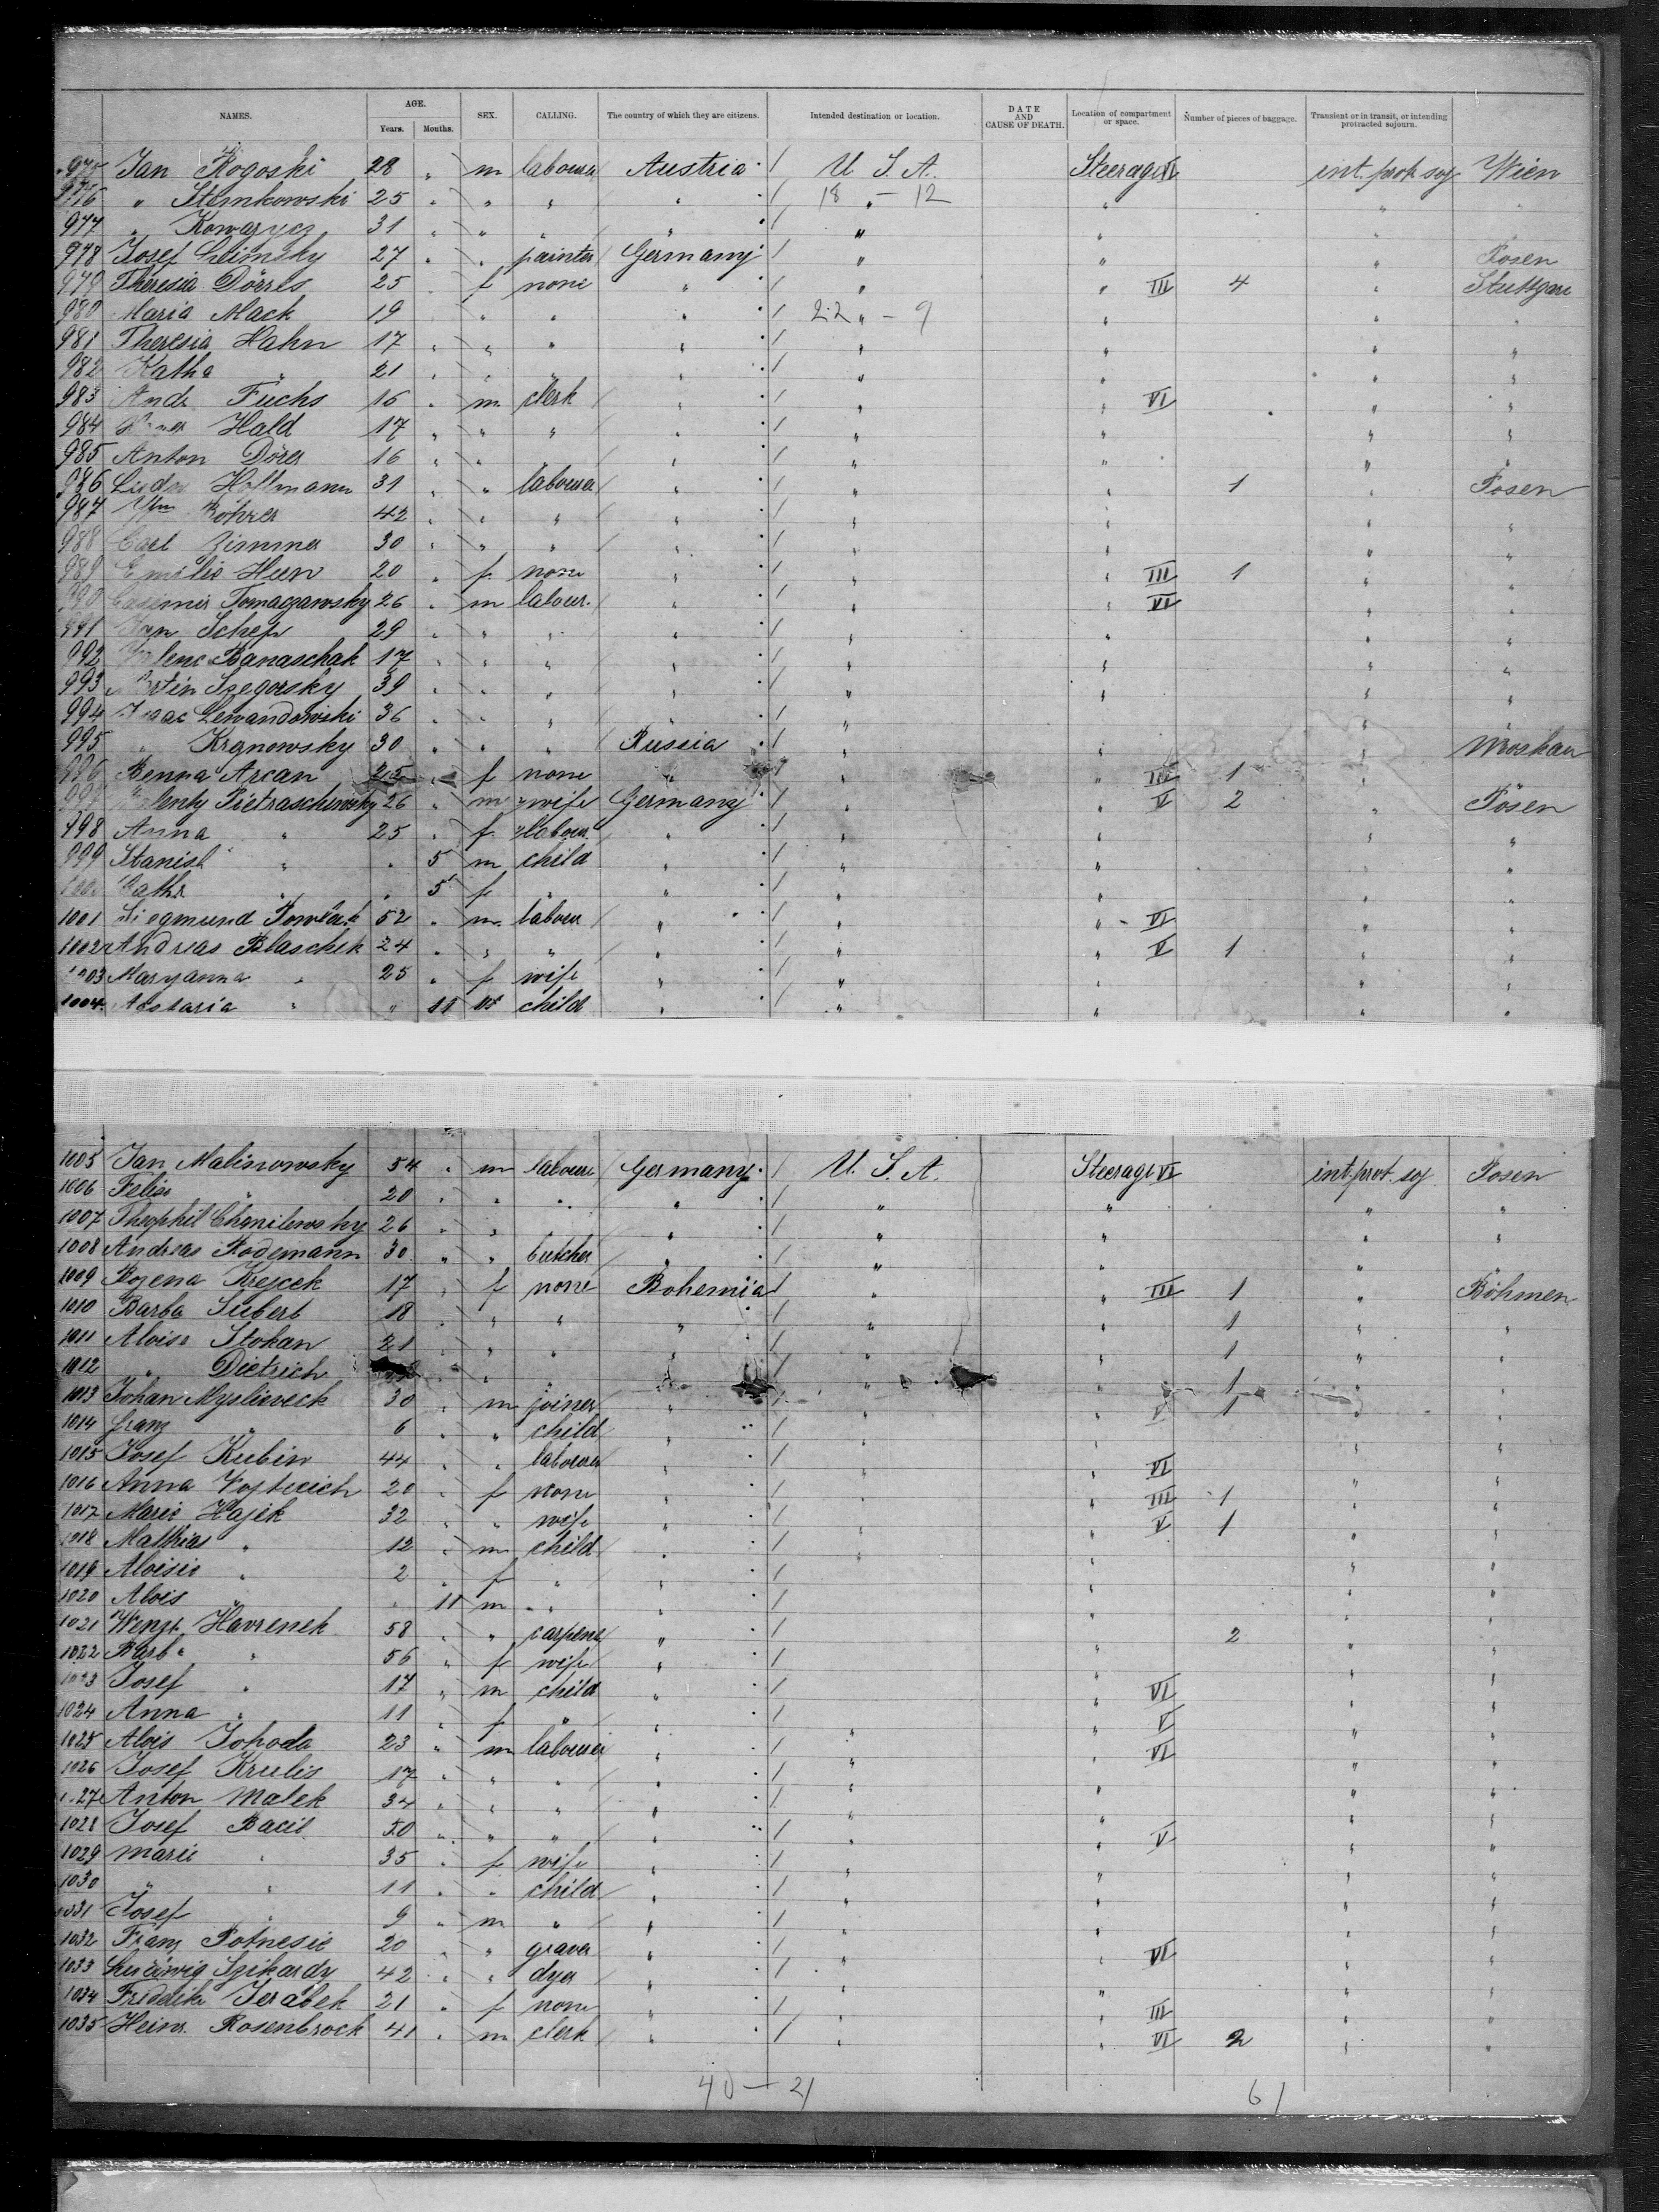 NAMES. AGE. Years. Months. SEX. CALLING. The country of which they are citizens. Intended destination or location. DATE AND CAUSE OF DEATH. Location of compartment or space. Number of pieces of baggage. Transient or in transit, or intending protracted sojourn.
975 Jan Rogoski 28 " m labourer Austria / U.S.A. Steerage VI int. prot. soj. Wien
976 " Stemkowski 25 " " " " / 18 " - 12 " " "
977 " 31 " " " " / " " "
978 Josef 27 " " painter Germany / " " " Posen
979 Theresia Dörres 25 " f none " / " " III 4 " Stuttgart
980 Maria Mack 19 " " " / 22 " - 9 " " "
981 Theresia Hahn 17 " " " " / " " " "
982 Katha " 21 " " " " / " " " "
983 Andr Fuchs 16 " m clerk " / " " VI " "
984 Hald 17 " " " " / " " " "
985 Anton Dörer 16 " " " / " " " "
986 Hoffmann 31 " " labourer " / " " 1 " Posen
987 Wm Röhrer 42 " " " " / " " " "
988 Carl Zimmer 30 " " " " / " " " "
989 Emilie Heen 20 " f none " / " " III 1 " "
990 Casimir Tomaczawsky 26 " m labour. " / " " VI " "
991 Jan Schep 29 " " " " / " " " "
992 Banaschak 17 " " " " / " " " "
993 Martin Szegorsky 39 " " " " / " " " "
994 Isaac Lewandowski 36 " " " / " " "
995 " Kranowsky 30 " " " Russia / " " " Moskau
996 Benna Arcan 25 " f none " / " " III 1 "
997 Valenty Pietraschewsky 26 " m wife Germany / " " V 2 " Posen
998 Anna " 25 " f labour " / " " " "
999 Stanisl " " 5 m child " / " " " "
Kath " " 5 f " " / " " " "
1001 Siegmund 52 " m labour " / " " VI " "
1002 Andreas Blaschek 24 " " " " / " " V 1 " "
1003 Maryanna " 25 " f wife " / " " " "
1004 " " 11 child " / " " " "
1005 Jan Malinowsky 54 " m labour Germany / U.S.A. Steerage VI int. prot. soj. Posen
1006 Felix " 20 " " " " / " " " "
1007 Theophil Chmilewsky 26 " " " " / " " " "
1008 Andreas Rodemann 30 " " butcher " / " " "
1009 Bozena Krejcek 17 " f none Bohemia / " " III 1 " Böhmen
1010 Barba Siebert 18 " " " " / " " 1 " "
1011 Aloisa Stokan 21 " " " " / " " 1 " "
1012 " Dietrich " " " " / " " 1 " "
1013 Johan Mysliveck 30 " m joiner " / " " V 1 " "
1014 Franz " 6 " " child " / " " "
1015 Josef Kubin 44 " " labourer " / " " VI " "
1016 Anna 20 " f none " / " " III 1 " "
1017 Marie Hajek 32 " " wife " / " " V 1 " "
1018 Mathias " 12 " m child " / " " " "
1019 Aloisie " 2 " f " " / " " "
1020 Alois " " 11 m " " / " " "
1021 Wenzl Havrenek 58 " " carpen. " / " 2 " "
1022 Barb " 56 " f wife " / " " "
1023 Josef " 17 " m child " / " VI " "
1024 Anna " 11 " f " " / " V " "
1025 Alois Johoda 23 " m labourer " / " " VI " "
1026 Josef Krulis 17 " " " " / " " " "
1027 Anton Malek 34 " " " " / " " " "
1028 Josef Bacil 50 " " " " / " " V " "
1029 Marie " 35 " f wife " / " " " "
1030 " " 11 " " child " / " " " "
1031 Josef " 9 " m " " / " " " "
1032 Franz Potnesic 20 " " graver " / " " VI " "
1033 Ludwig Szikardy 42 " " dyer " / " " " "
1034 Friderike Jerabek 21 " f none " / " " III " "
1035 Heinr. Rosenbrock 41 " m clerk " / " " VI 2 " "
40 - 21 61